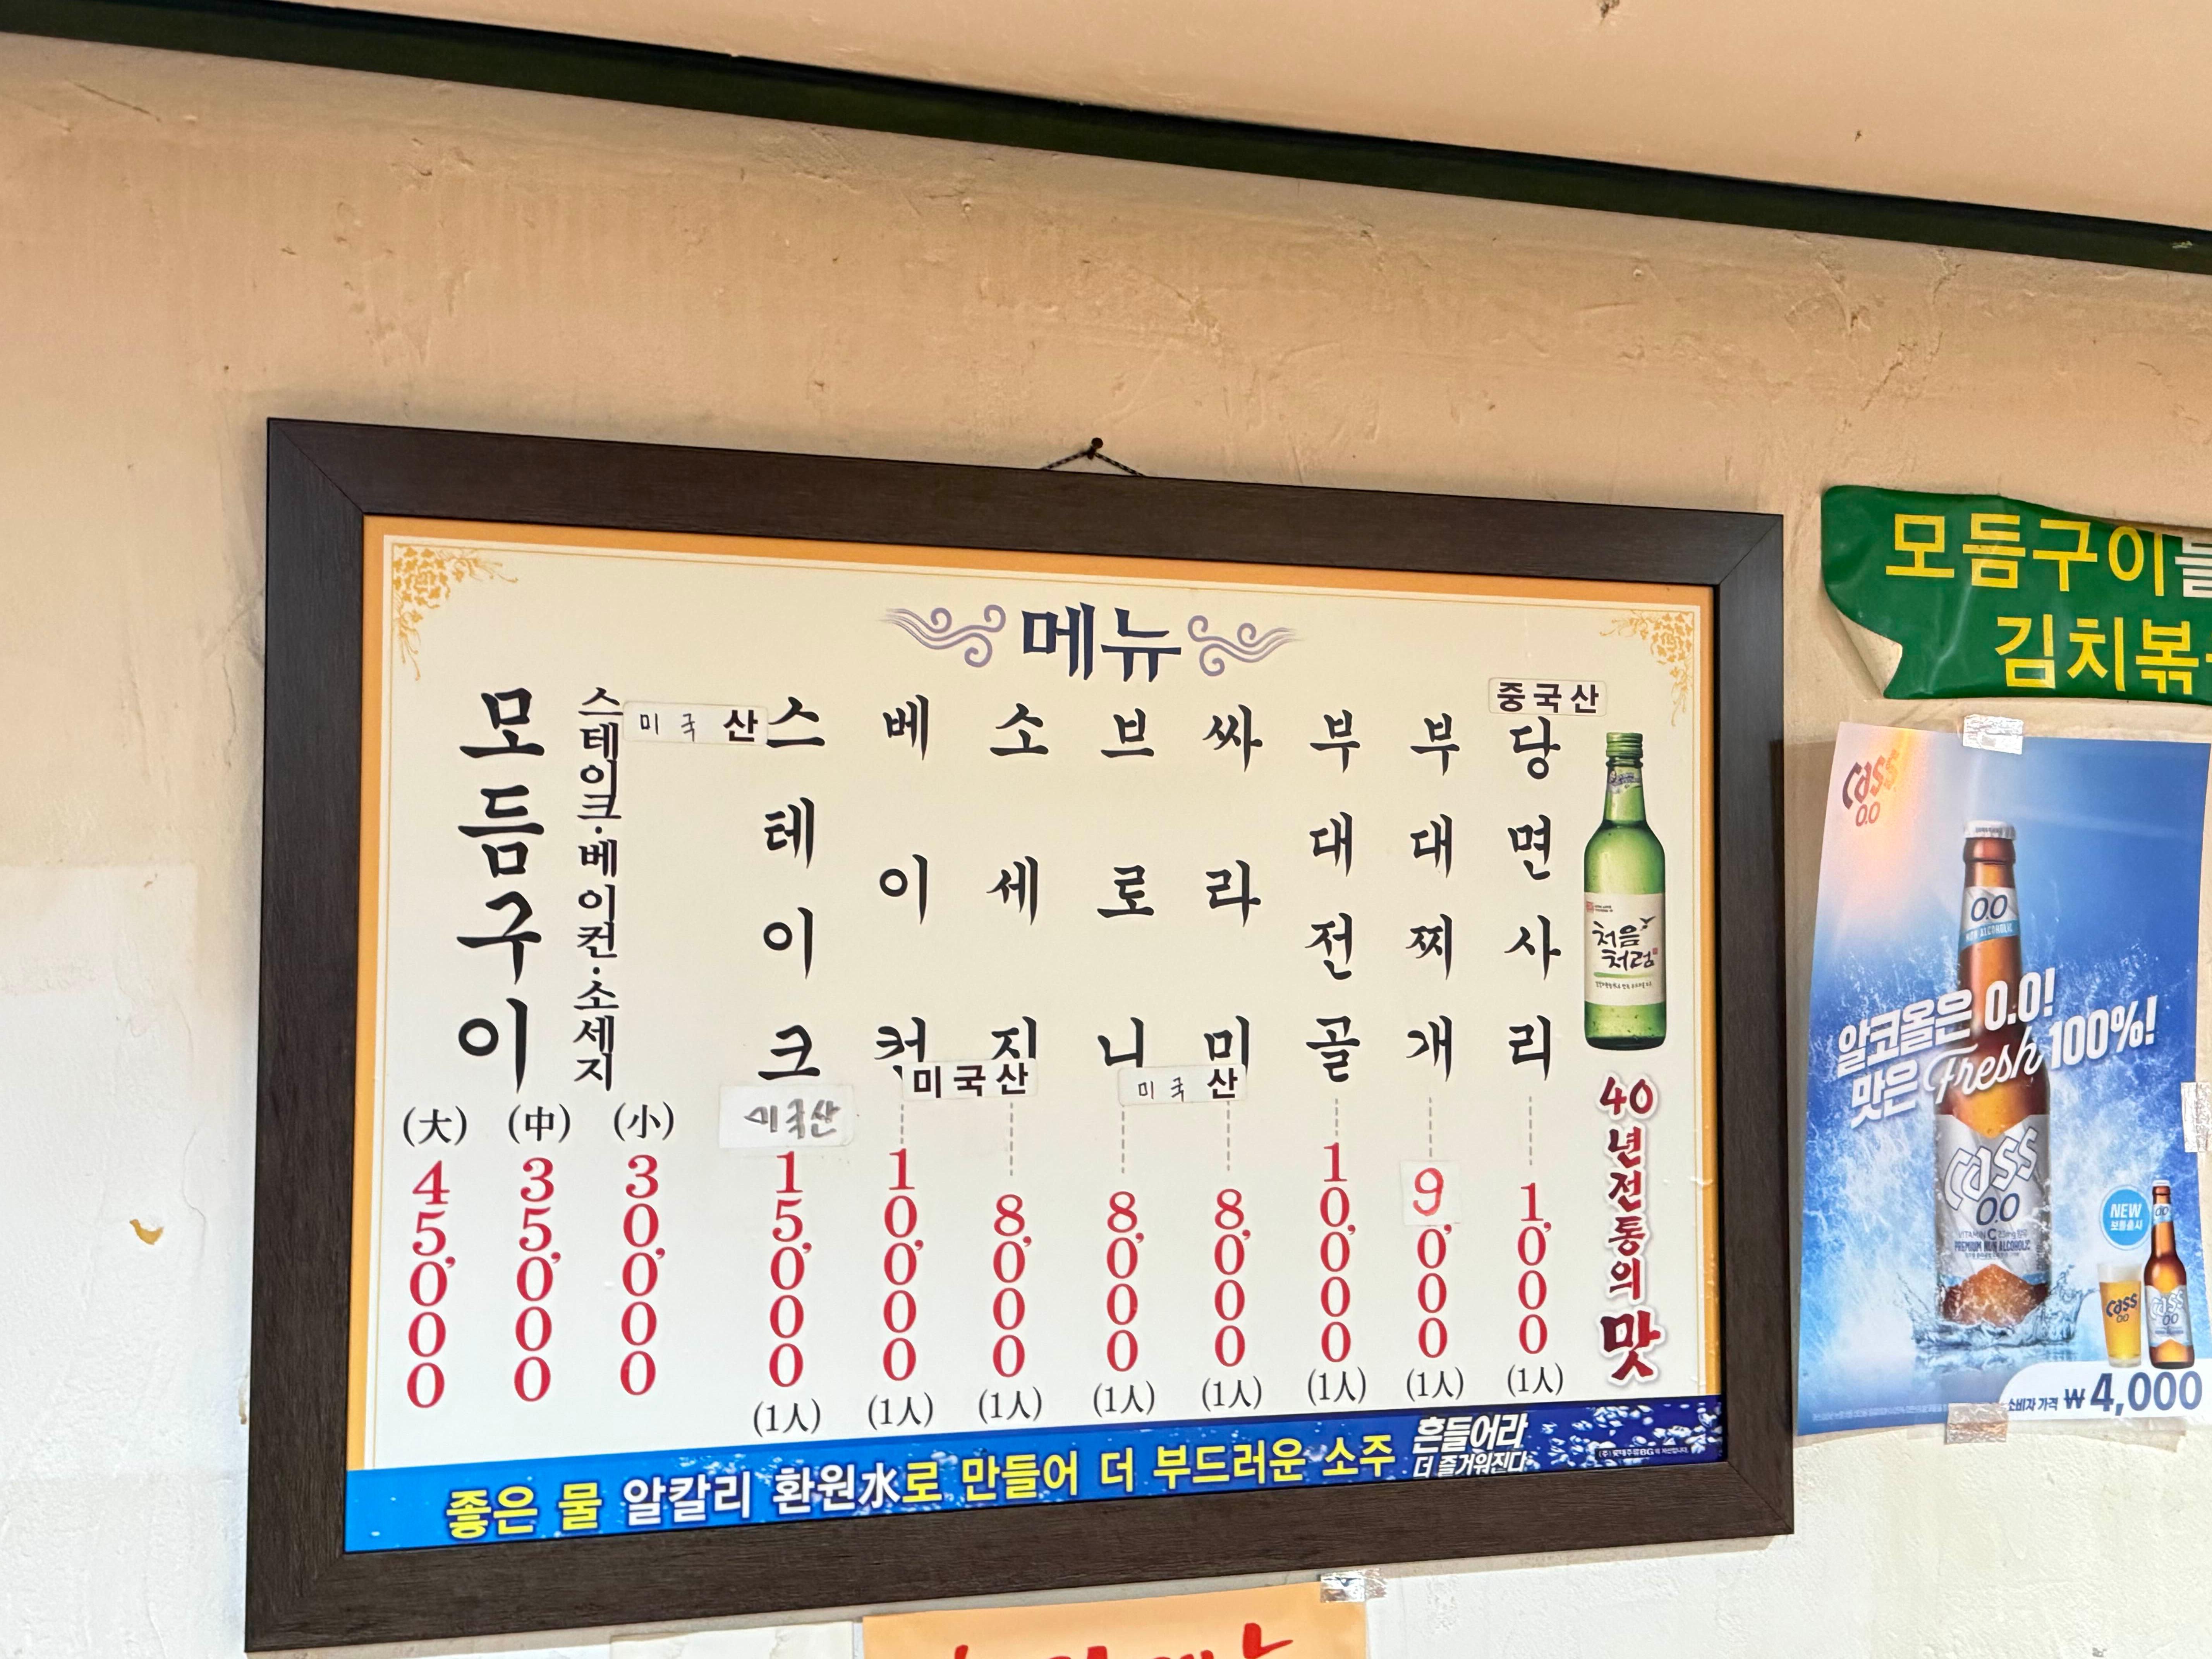 메뉴
모듬구이
스테이크·베이컨·소세지
미국산
(大) 45,000
(中) 35,000
(小) 30,000
스테이크
미국산
15,000
(1人)
베이컨
10,000
(1人)
소세지
8,000
(1人)
미국산
브로니
8,000
(1人)
싸라미
8,000
(1人)
미국산
부대전골
10,000
(1人)
부대찌개
9,000
(1人)
중국산
당면사리
1,000
(1人)
처음
처럼
40년전통의 맛
좋은 물 알칼리 환원水로 만들어 더 부드러운 소주
흔들어라
더 즐거워진다
모듬구이를
김치볶
Cass
0.0
0.0
NON ALCOHOLIC
알코올은 0.0!
맛은 Fresh 100%!
Cass
0.0
PREMIUM NON ALCOHOLIC
NEW
Cass
0.0
소비자 가격 ₩4,000